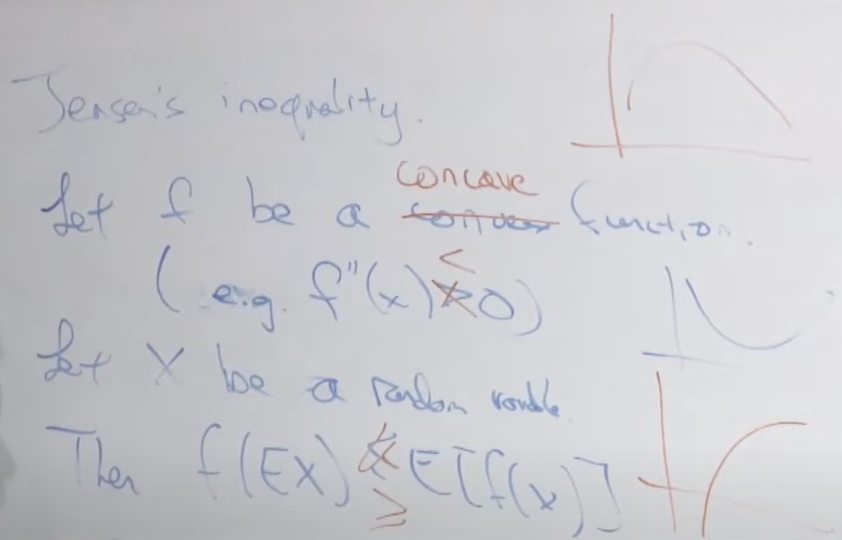 Jensen's inequality.
Let f be a concave function.
(e.g. f''(x) < 0)
Let X be a random variable
Then f(EX) ≥ E[f(x)]